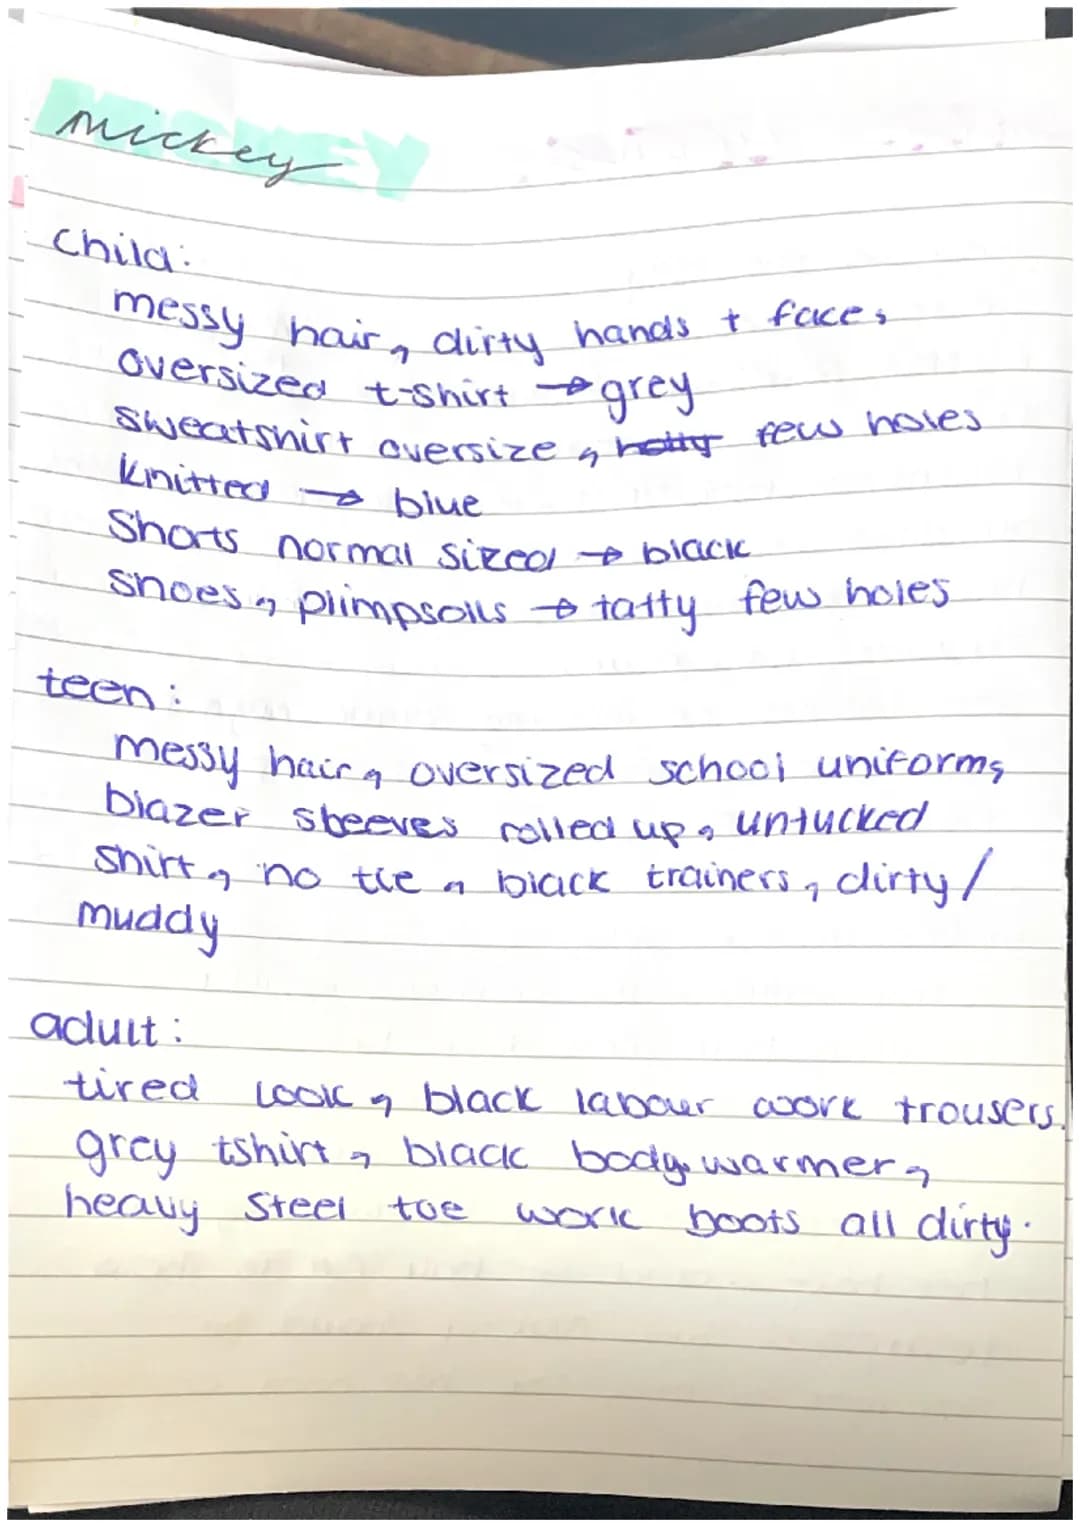 mickey
child:
messy hair, dirty hands + face,
oversized t-shirt → grey
sweatshirt oversize, few holes
knitted → blue
Shorts normal sized → black
shoes, plimpsolls → tatty few holes
teen:
messy hair, oversized school uniform,
blazer sleeves rolled up, untucked
shirt, no tie, black trainers, dirty/
muddy
adult:
tired look, black labour work trousers,
grey tshirt, black body warmer,
heavy steel toe work boots all dirty.